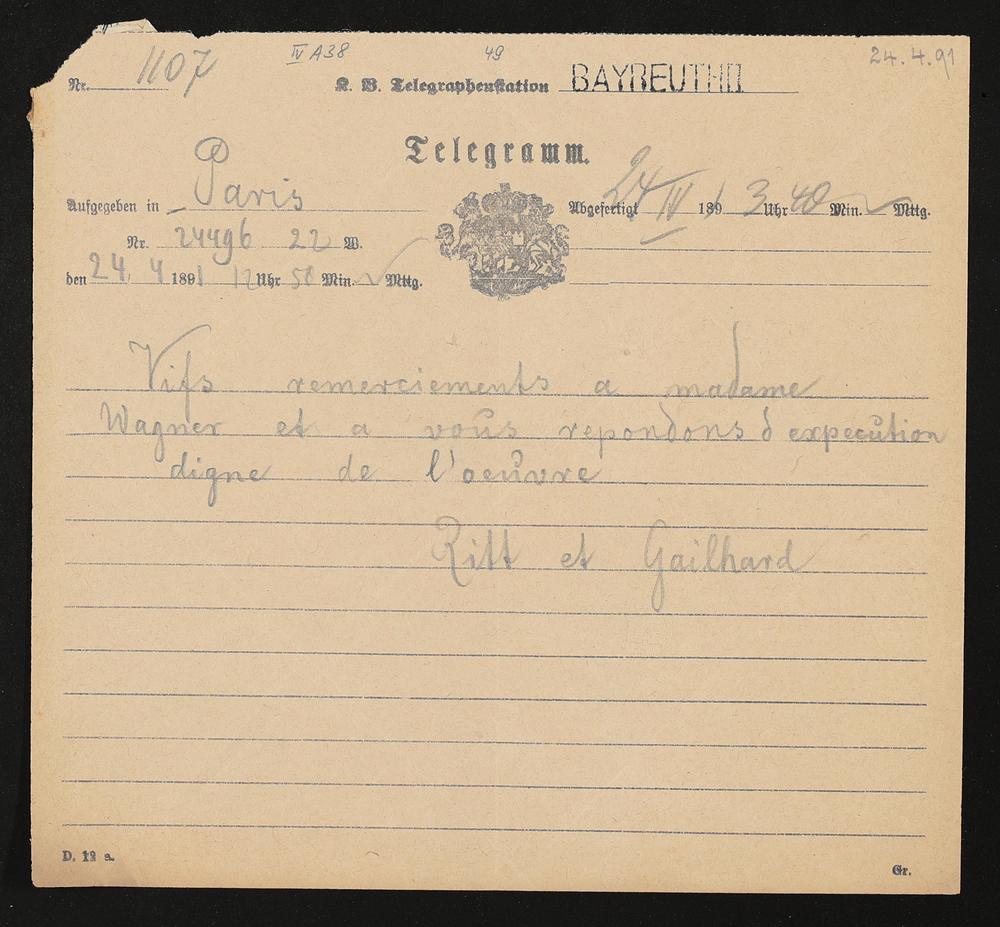 IV A38 49 24.4.91
Nr. 1107 K. B. Telegraphenstation BAYREUTH II
Telegramm.
Aufgegeben in Paris
Abgefertigt 24 IV 1891 3 Uhr 40 Min. Mttg.
Nr. 24496 22 W.
den 24. 4 1891 12 Uhr 50 Min. Mttg.
Vifs remerciements a madame
Wagner et a vous repondons d expecution
digne de l'oeuvre
Ritt et Gailhard
D. 12 a.
Gr.